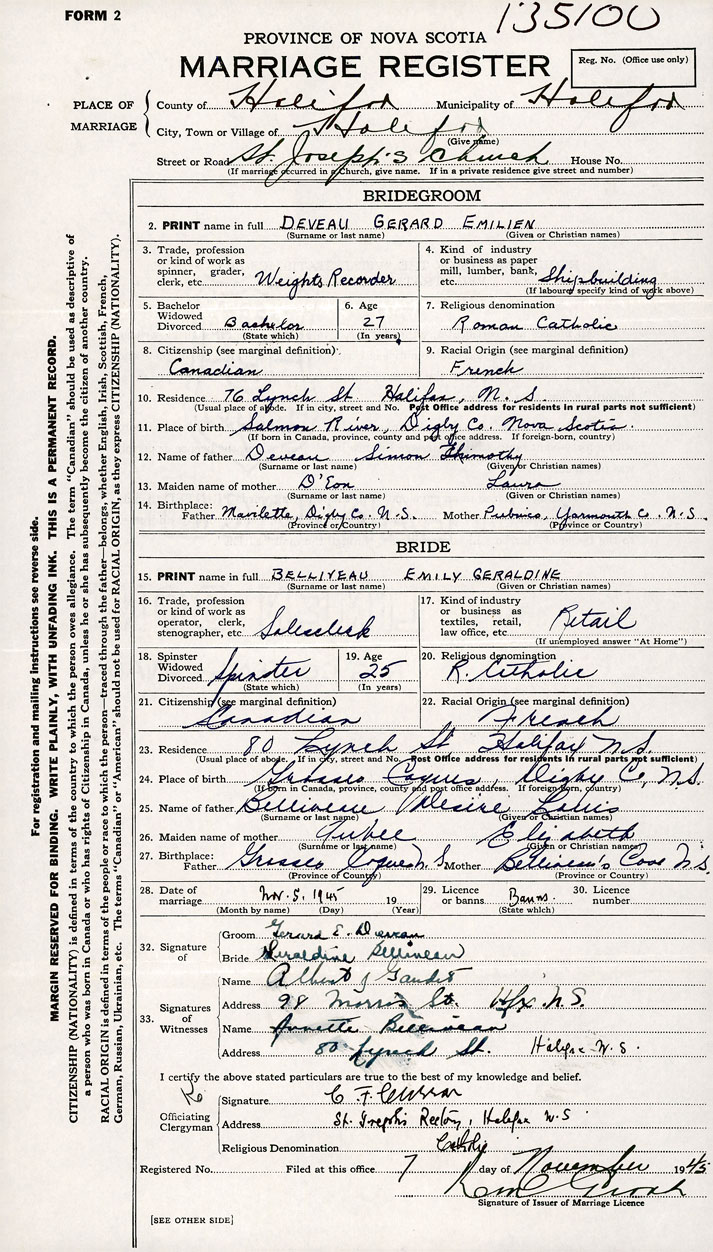 FORM 2
135100
PROVINCE OF NOVA SCOTIA
MARRIAGE REGISTER
Reg. No. (Office use only)
PLACE OF MARRIAGE
County of Halifax Municipality of Halifax
City, Town or Village of Halifax
(Give name)
Street or Road St. Joseph's Church House No.
(If marriage occurred in a Church, give name. If in a private residence give street and number)
BRIDEGROOM
2. PRINT name in full DEVEAU GERARD EMILIEN
(Surname or last name) (Given or Christian names)
3. Trade, profession or kind of work as spinner, grader, clerk, etc. Weights Recorder
4. Kind of industry or business as paper mill, lumber, bank, etc. Shipbuilding
(If laboured specify kind of work above)
5. Bachelor Widowed Divorced Bachelor
(State which)
6. Age 27
(In years)
7. Religious denomination
Roman Catholic
8. Citizenship (see marginal definition)
Canadian
9. Racial Origin (see marginal definition)
French
10. Residence 76 Lynch St Halifax, N. S.
(Usual place of abode. If in city, street and No. Post Office address for residents in rural parts not sufficient)
11. Place of birth Salmon River, Digby Co. Nova Scotia.
(If born in Canada, province, county and post office address. If foreign-born, country)
12. Name of father Deveau Simon Thimothy
(Surname or last name) (Given or Christian names)
13. Maiden name of mother D'Eon Laura
(Surname or last name) (Given or Christian names)
14. Birthplace: Father Mavilette, Digby Co. N.S. Mother Pubnico, Yarmouth Co. N.S.
(Province or Country) (Province or Country)
BRIDE
15. PRINT name in full BELLIVEAU EMILY GERALDINE
(Surname or last name) (Given or Christian names)
16. Trade, profession or kind of work as operator, clerk, stenographer, etc. Salesclerk
17. Kind of industry or business as textiles, retail, law office, etc. Retail
(If unemployed answer "At Home")
18. Spinster Widowed Divorced Spinster
(State which)
19. Age 25
(In years)
20. Religious denomination
R. Catholic
21. Citizenship (see marginal definition)
Canadian
22. Racial Origin (see marginal definition)
French
23. Residence 80 Lynch St Halifax N.S.
(Usual place of abode. If in city, street and No. Post Office address for residents in rural parts not sufficient)
24. Place of birth Grosses Coques, Digby Co, N.S.
(If born in Canada, province, county and post office address. If foreign-born, country)
25. Name of father Belliveau Desire Louis
(Surname or last name) (Given or Christian names)
26. Maiden name of mother Elizabeth
(Surname or last name) (Given or Christian names)
27. Birthplace: Father Grosses Coques N.S Mother Belliveau's Cove N.S.
(Province of Country) (Province or Country)
28. Date of marriage Nov. 5, 1945 19
(Month by name) (Day) (Year)
29. Licence or banns Banns
(State which)
30. Licence number
32. Signature of
Groom Gerard E. Deveau
Bride Geraldine Belliveau
33. Signatures of Witnesses
Name Albert J Gaudet
Address 98 Morris St. Hfx N.S.
Name Annette Belliveau
Address 80 Lynch St. Halifax N.S.
I certify the above stated particulars are true to the best of my knowledge and belief.
Officiating Clergyman
Signature C. F.
Address St. Joseph's Rectory, Halifax N.S
Religious Denomination Catholic
Registered No. Filed at this office 7 day of November 1945
Signature of Issuer of Marriage Licence
[SEE OTHER SIDE]
For registration and mailing instructions see reverse side.
MARGIN RESERVED FOR BINDING. WRITE PLAINLY, WITH UNFADING INK. THIS IS A PERMANENT RECORD.
CITIZENSHIP (NATIONALITY) is defined in terms of the country to which the person owes allegiance. The term "Canadian" should be used as descriptive of
a person who was born in Canada or who has rights of Citizenship in Canada, unless he or she has subsequently become the citizen of another country.
RACIAL ORIGIN is defined in terms of the people or race to which the person—traced through the father—belongs, whether English, Irish, Scottish, French,
German, Russian, Ukrainian, etc. The terms "Canadian" or "American" should not be used for RACIAL ORIGIN, as they express CITIZENSHIP (NATIONALITY).